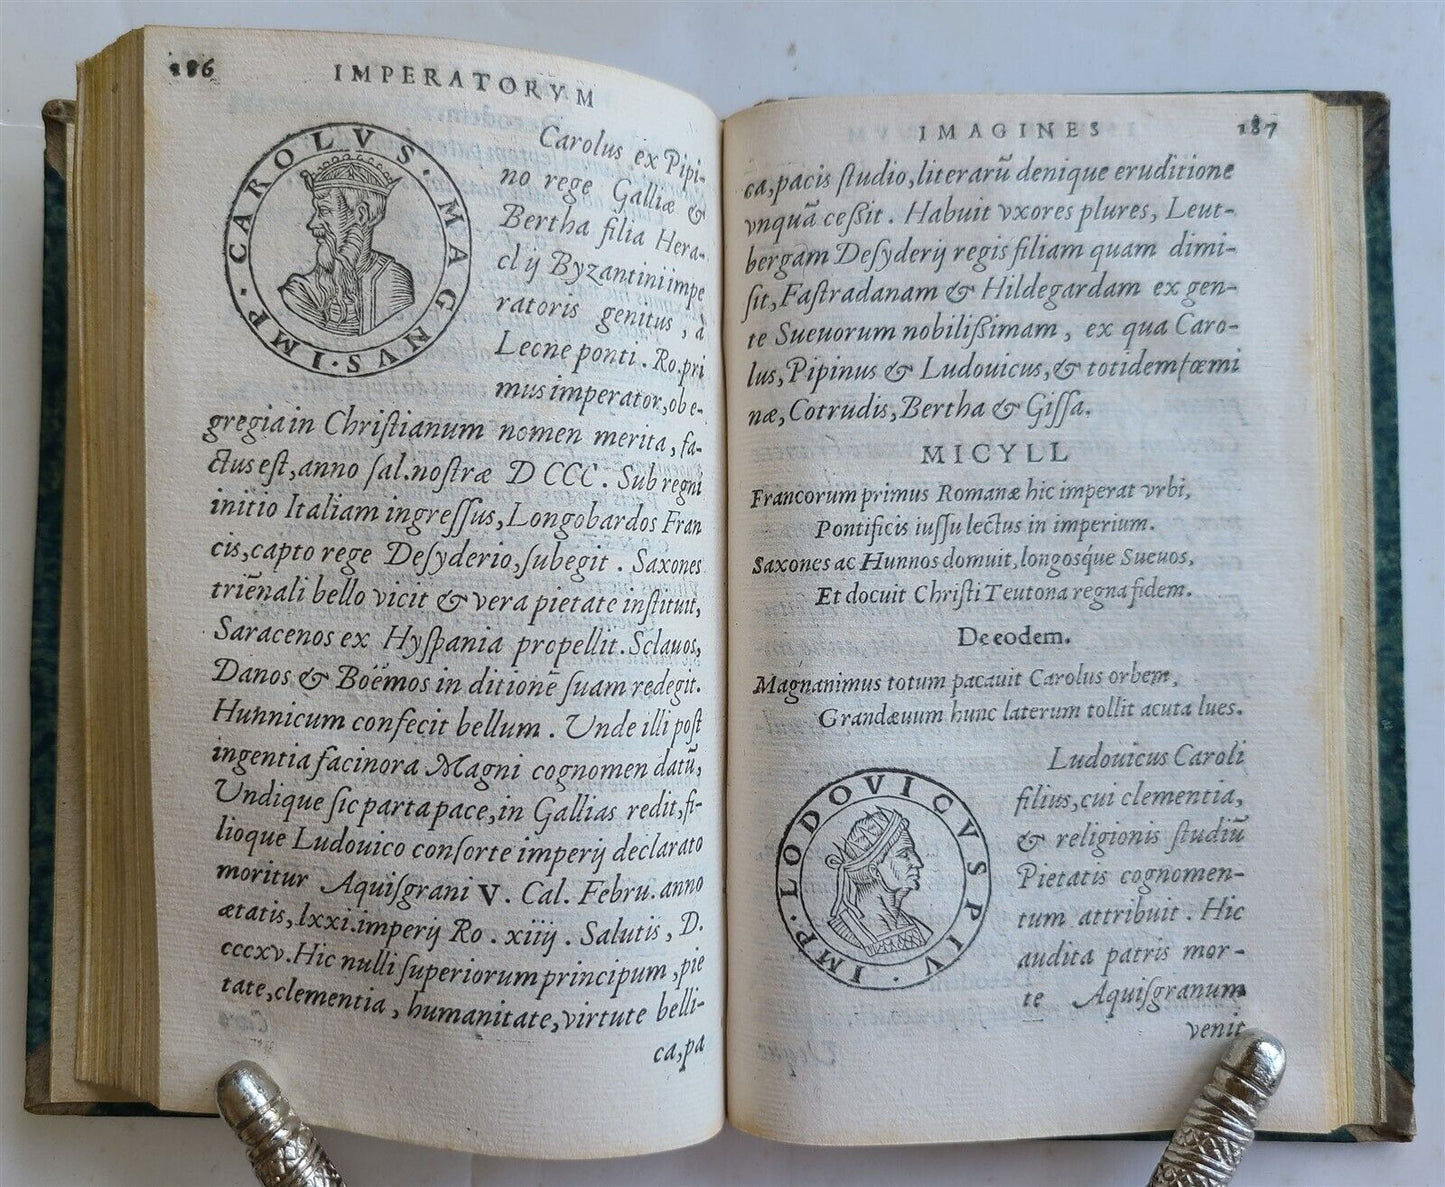 186 IMPERATORVM
CAROLVS · MAGNVS · IMP ·
Carolus ex Pipi-
no rege Galliæ &
Bertha filia Hera-
clij Byzantini impe
ratoris genitus, à
Leone ponti. Ro. pri
mus imperator, ob e-
gregia in Christianum nomen merita, fa-
ctus est, anno sal. nostræ DCCC. Sub regni
initio Italiam ingressus, Longobardos Fran
cis, capto rege Desyderio, subegit. Saxones
triēnali bello vicit & vera pietate instituit,
Saracenos ex Hyspania propellit. Sclauos,
Danos & Boëmos in ditionē suam redegit.
Hunnicum confecit bellum. Unde illi post
ingentia facinora Magni cognomen datū,
Undique sic parta pace, in Gallias redit, fi-
lioque Ludouico consorte imperij declarato
moritur Aquisgrani V. Cal. Febru. anno
ætatis, lxxi. imperij Ro. xiiij. Salutis, D.
cccxv. Hic nulli superiorum principum, pie
tate, clementia, humanitate, virtute belli-
ca, pa
IMAGINES 187
ca, pacis studio, literarū denique eruditione
vnquā cessit. Habuit vxores plures, Leut-
bergam Desyderij regis filiam quam dimi-
sit, Fastradanam & Hildegardam ex gen-
te Sueuorum nobilissimam, ex qua Caro-
lus, Pipinus & Ludouicus, & totidem fœmi
næ, Cotrudis, Bertha & Gissa.
MICYLL
Francorum primus Romanæ hic imperat vrbi,
Pontificis iussu lectus in imperium.
Saxones ac Hunnos domuit, longosq́ue Sueuos,
Et docuit Christi Teutona regna fidem.
De eodem.
Magnanimus totum pacauit Carolus orbem,
Grandæuum hunc laterum tollit acuta lues.
IMP · LODOVICVS PIV ·
Ludouicus Caroli
filius, cui clementia,
& religionis studiū
Pietatis cognomen-
tum attribuit. Hic
audita patris mor-
te Aquisgranum
venit